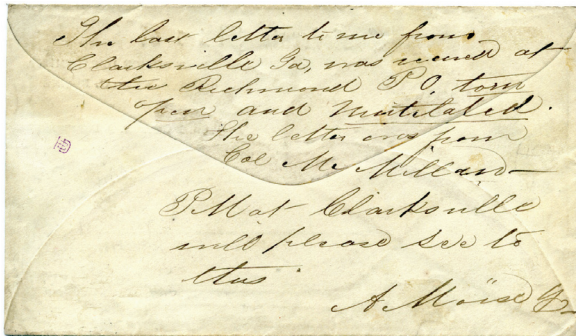 The last letter to me from
Clarksville Ga, was received at
the Richmond P.O. torn
open and mutilated.
The letter was from
Col McMillan
P.M at Clarksville
will please see to
this
A Moïse Jr